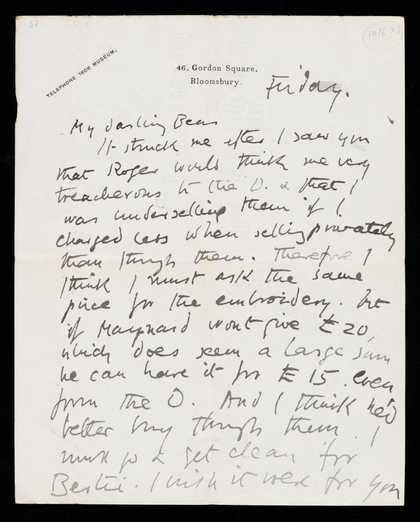 TELEPHONE 1608 MUSEUM.
46, Gordon Square,
Bloomsbury.
Friday.
My darling Bear
It struck me after I saw you
that Roger would think me very
treacherous to the O. & that I
was underselling them if I
charged less when selling privately
than through them. Therefore I
think I must ask the same
price for the embroidery. But
if Maynard wont give £20,
which does seem a large sum
he can have it for £15. even
from the O. And I think he'd
better buy through them. I
must go & get clean for
Bertie. I wish it were for you